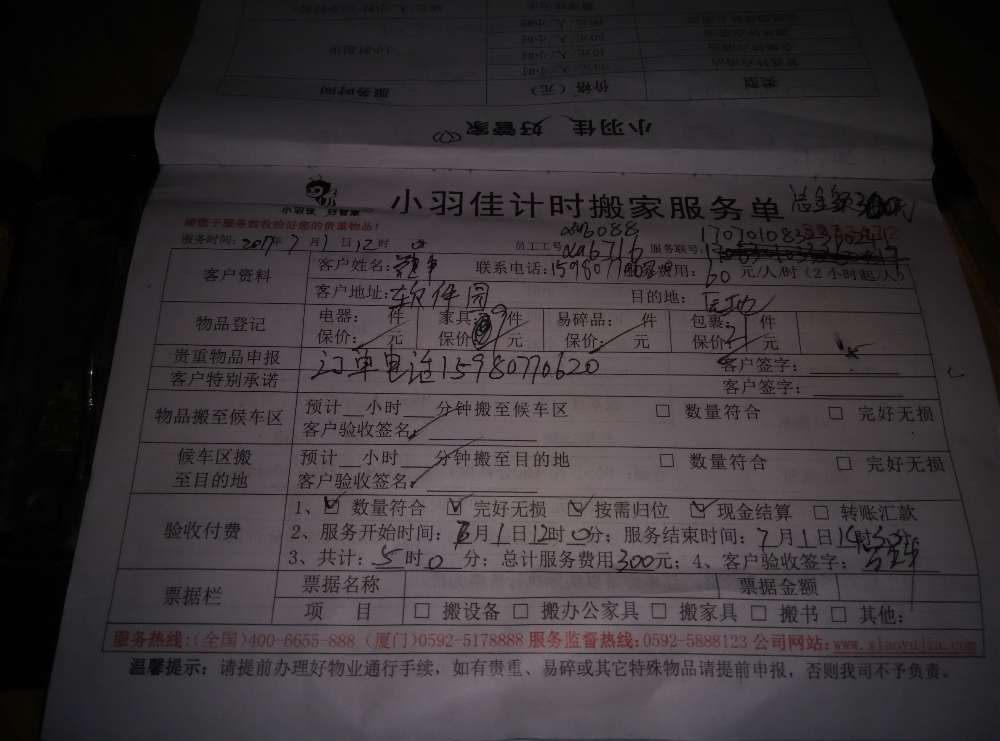 类型 价格（元） 服务时间
小羽佳 好管家
小羽佳 好管家
小羽佳计时搬家服务单 总金额300元
请您于服务前收拾好您的贵重物品！
服务时间：2017年7月1日12时
员工工号 服务联号：
客户资料
客户姓名： 联系电话：15980770620 费用：60元/人/时（2小时起/人）
客户地址：软件园 目的地：
物品登记
电器： 件 家具： 件 易碎品： 件 包裹： 件
保价： 元 保价 元 保价： 元 保价 元
贵重物品申报 订单电话15980770620 客户签字：
客户特别承诺 客户签字：
物品搬至候车区
预计__小时___分钟搬至候车区 □ 数量符合 □ 完好无损
客户验收签名：
候车区搬至目的地
预计__小时___分钟搬至目的地 □ 数量符合 □ 完好无损
客户验收签名：
验收付费
1、☑ 数量符合 ☑ 完好无损 ☑ 按需归位 ☑ 现金结算 □ 转账汇款
2、服务开始时间：7月1日12时0分；服务结束时间：7月1日
3、共计：5时0分；总计服务费用300元；4、客户验收签字：
票据栏
票据名称 票据金额
项 目 □ 搬设备 □ 搬办公家具 □ 搬家具 □ 搬书 □ 其他：
服务热线：（全国）400-6655-888（厦门）0592-5178888 服务监督热线：0592-5888123 公司网站：www.xiaoyujia.com
温馨提示：请提前办理好物业通行手续，如有贵重、易碎或其它特殊物品请提前申报，否则我司不予负责。